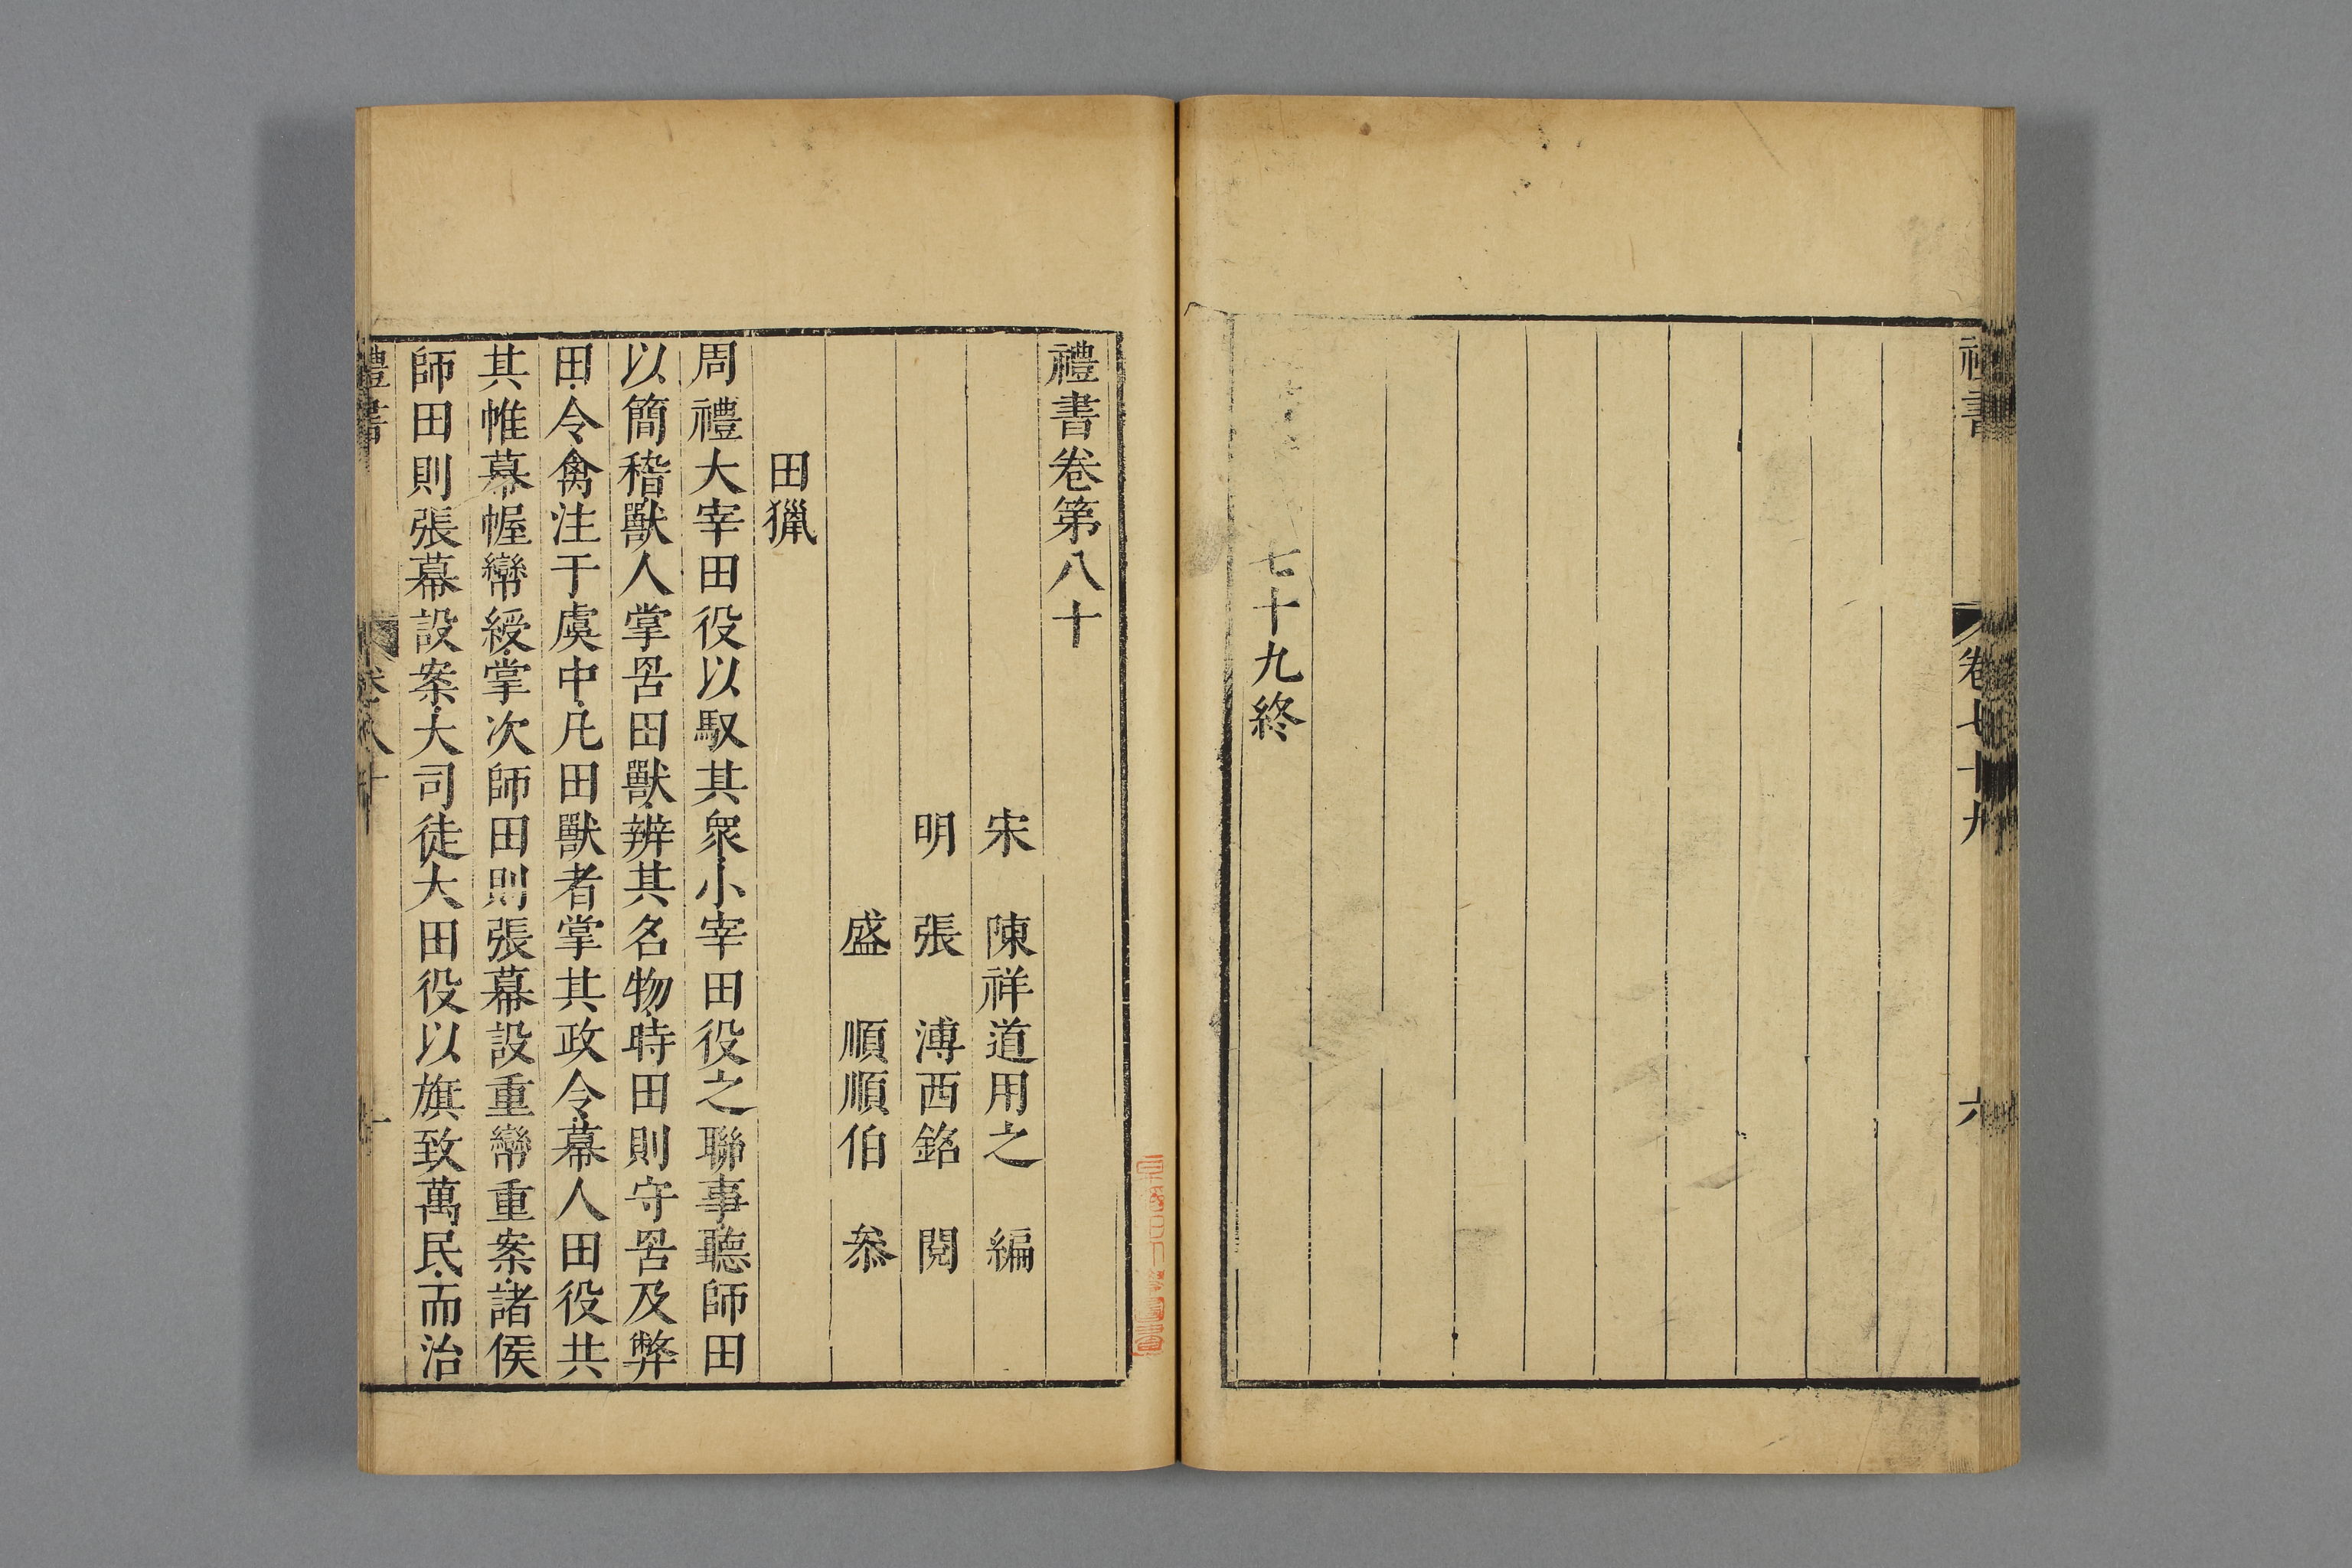 禮書
卷七十九
六
七十九終
禮書卷第八十
宋　陳祥道用之　編
明　張　溥西銘　閱
盛　順順伯　叅
田獵
周禮大宰田役以馭其衆小宰田役之聯事聽師田
以簡稽獸人掌罟田獸辨其名物時田則守罟及弊
田令禽注于虞中凡田獸者掌其政令幕人田役共
其帷幕幄帟綬掌次師田則張幕設重帟重案諸侯
師田則張幕設案大司徒大田役以旗致萬民而治
禮書
卷八十
一